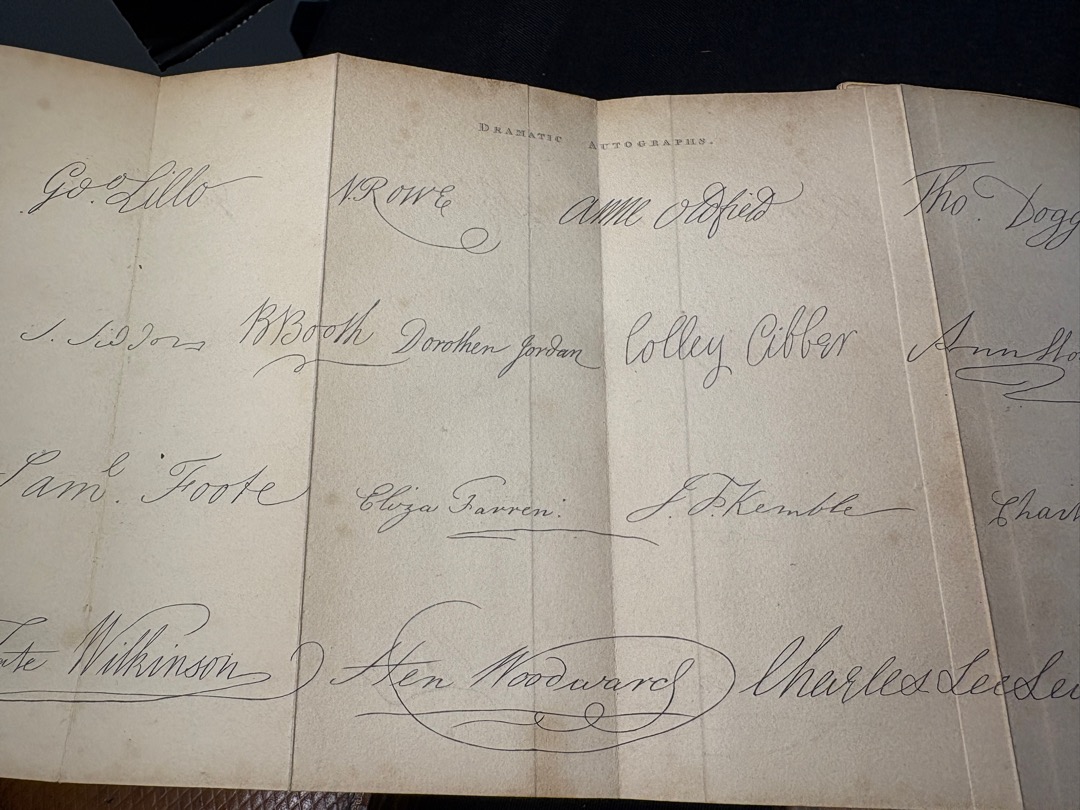 DRAMATIC AUTOGRAPHS.
Geo. Lillo N. Rowe Anne Oldfield Tho. Dogg
S. Siddons B Booth Dorothea Jordan Colley Cibber Ann
Saml. Foote Eliza Farren. J. P. Kemble Charl
Wilkinson Hen Woodward Charles Lee Lew